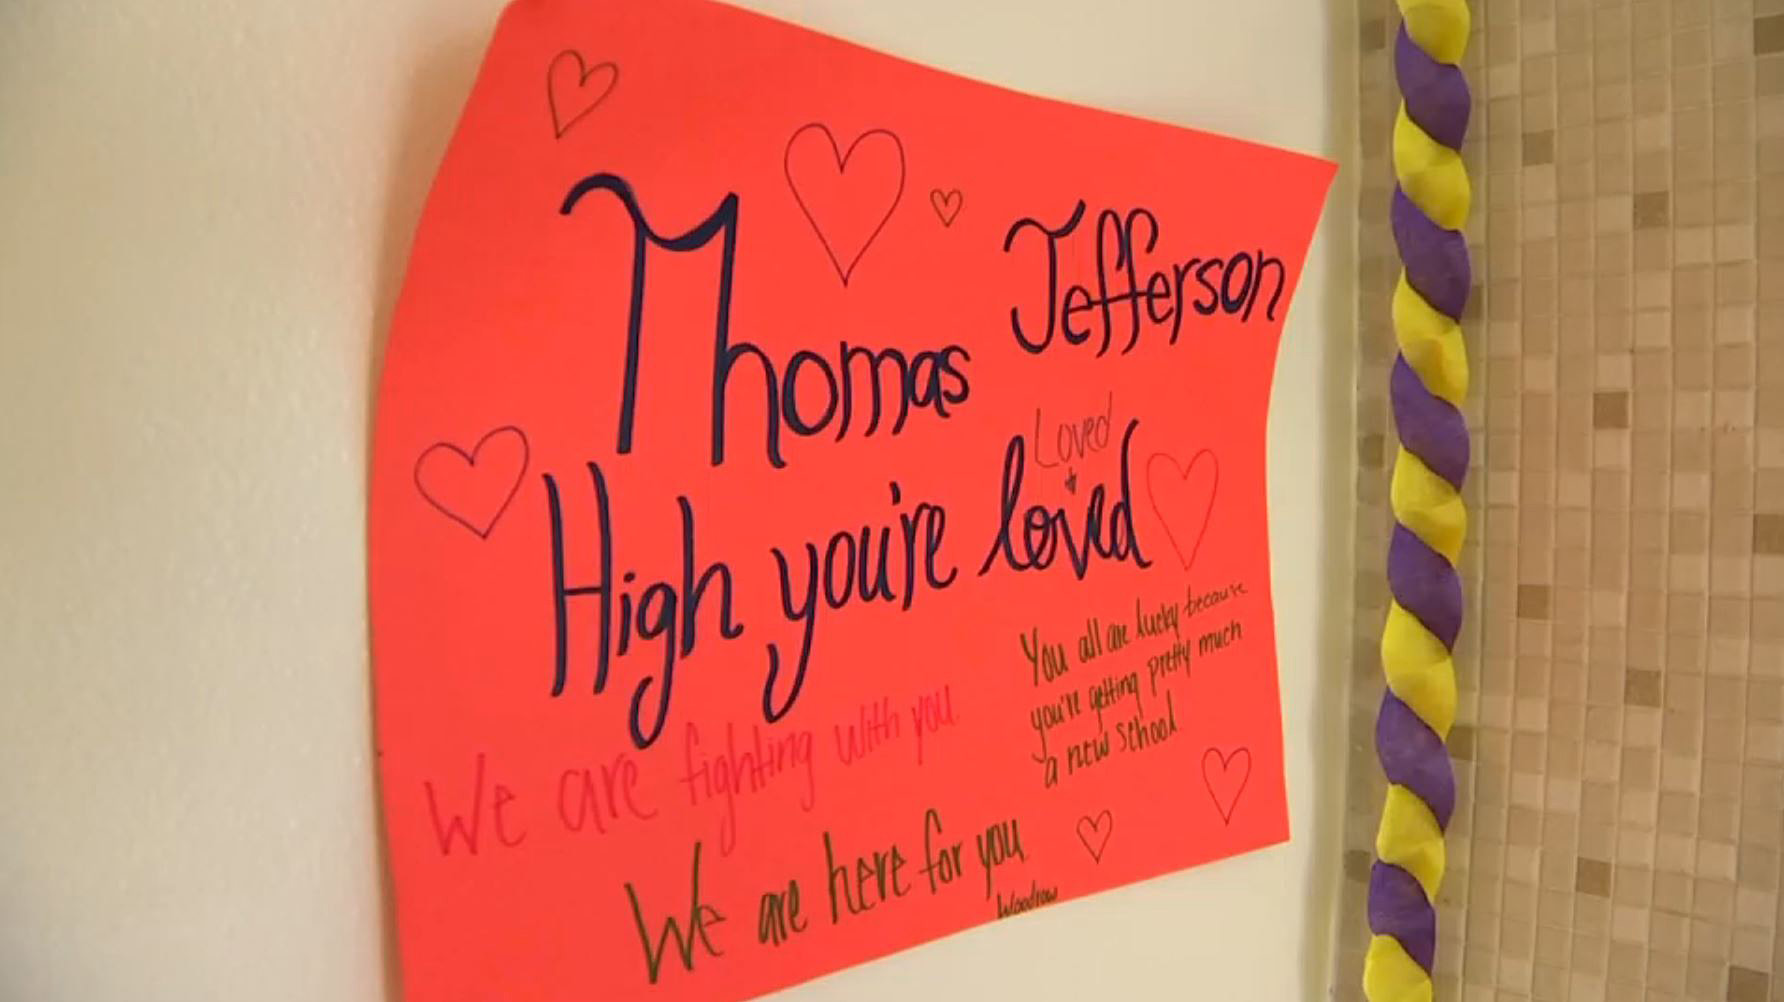 Thomas Jefferson
High you're loved
Loved
+
You all are lucky because
you're getting pretty much
a new school
We are fighting with you.
We are here for you
Woodrow